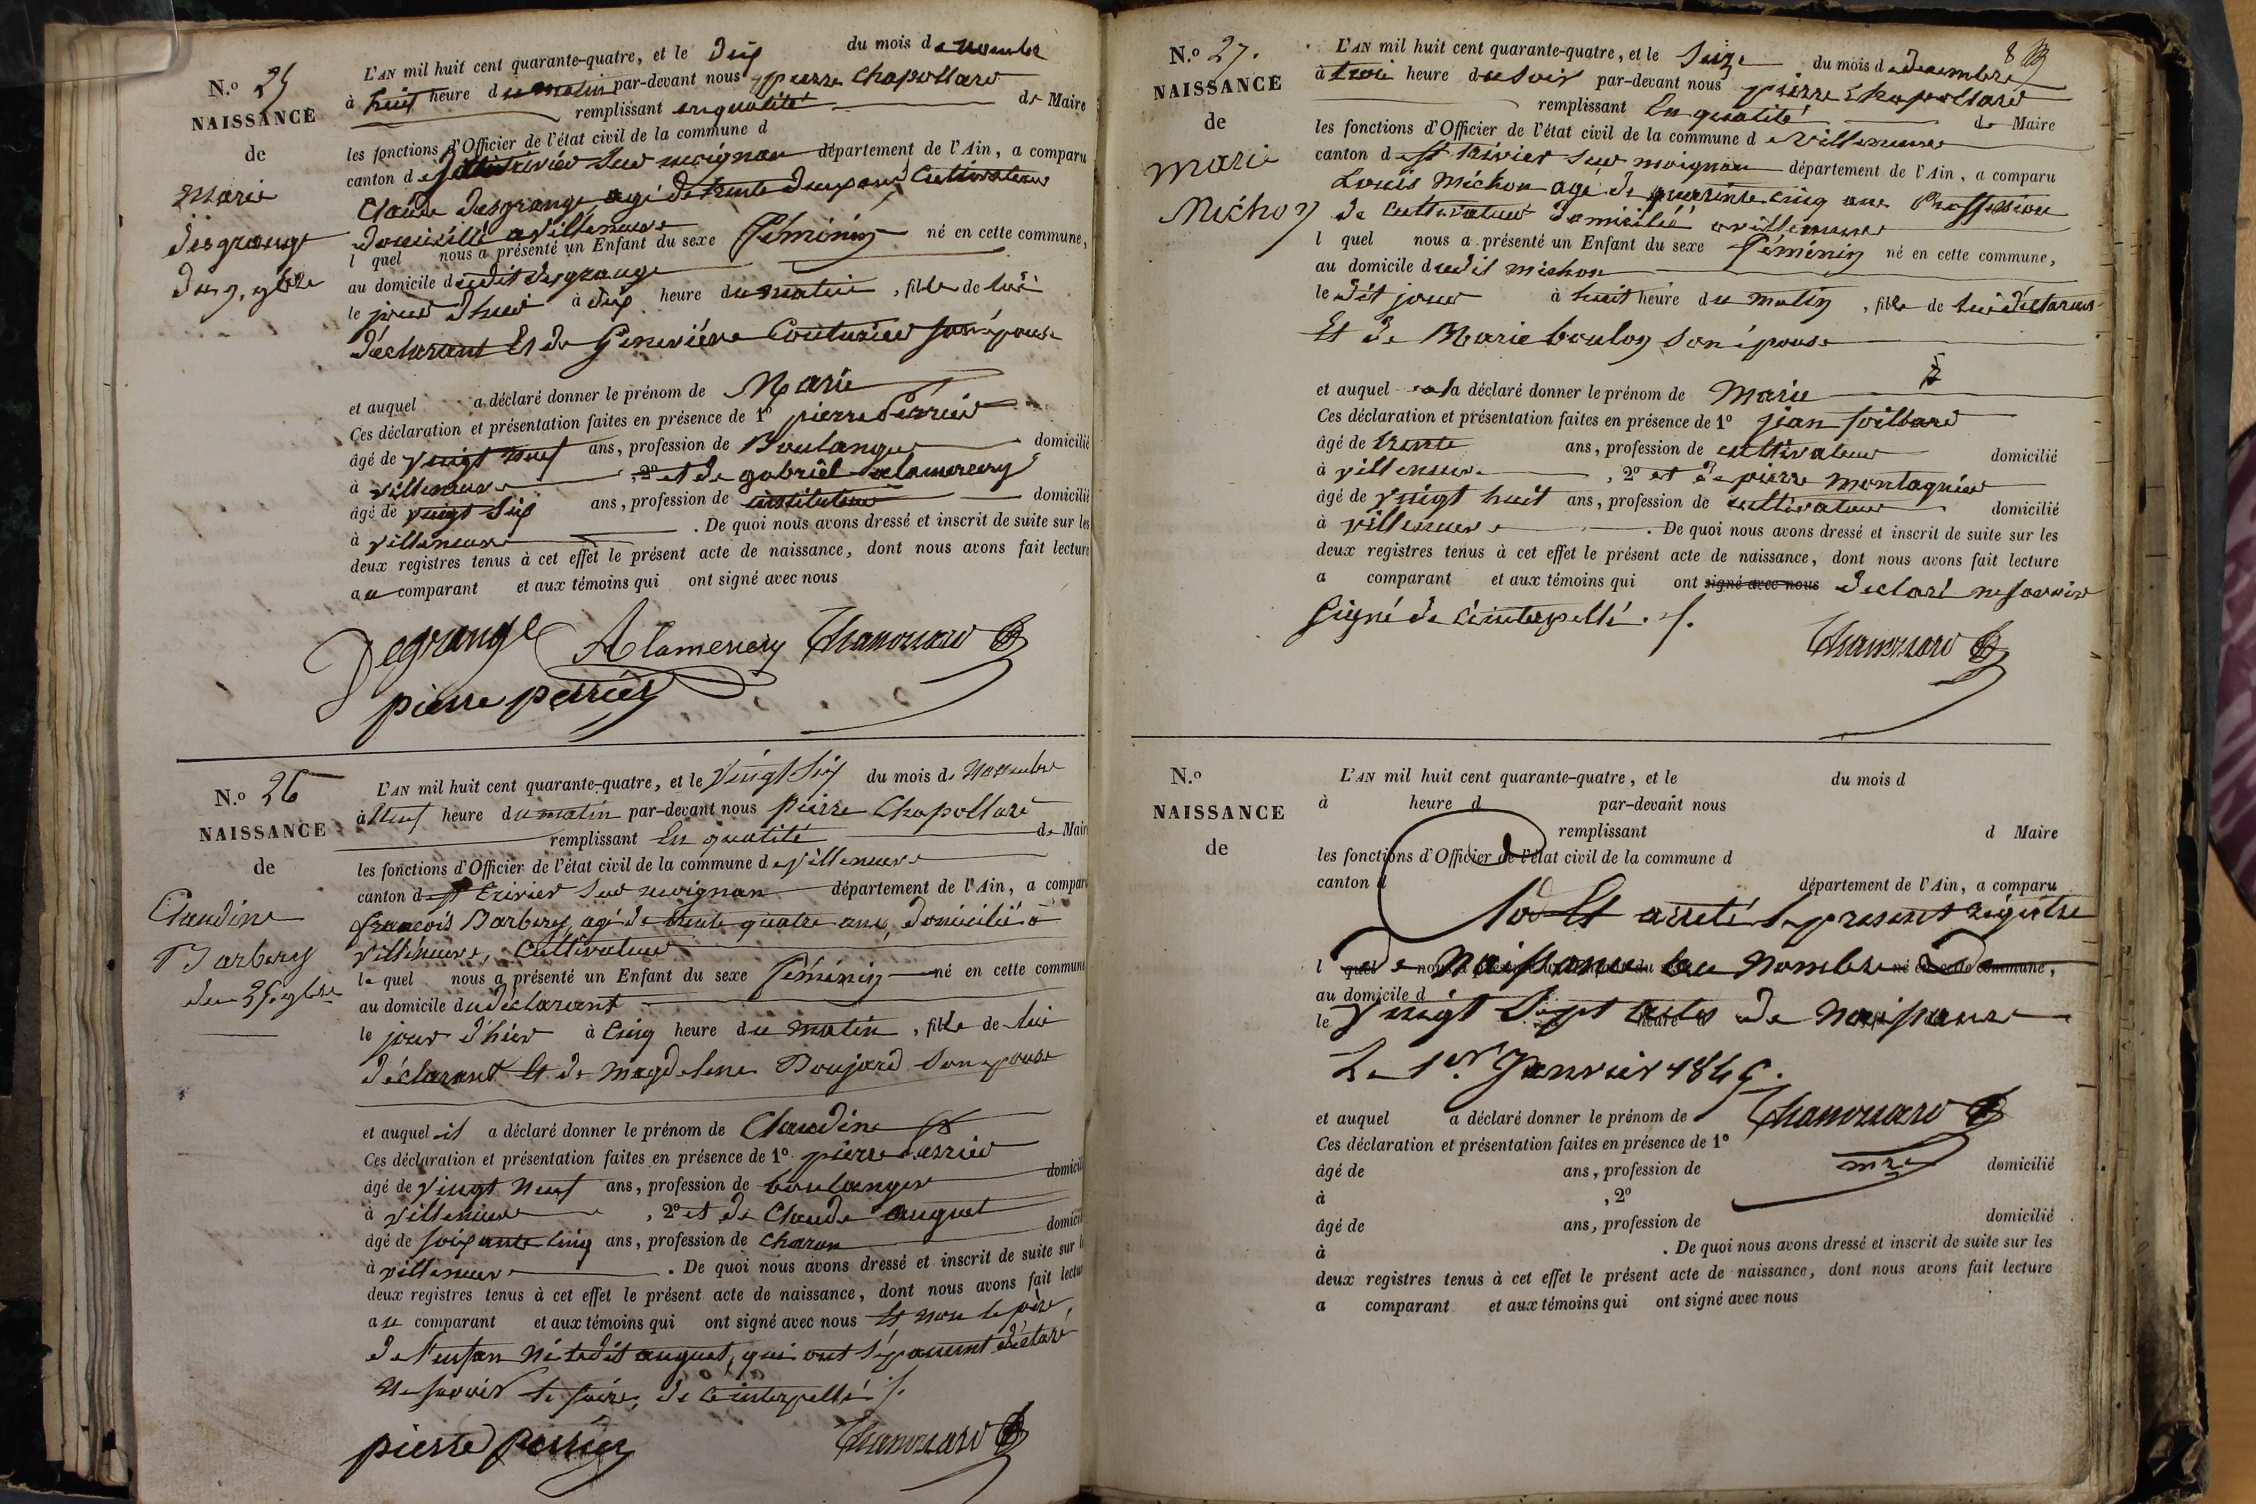 N.º 25
NAISSANCE
de
Marie
desgrange
du 9. 9bre
L'AN mil huit cent quarante-quatre, et le dix du mois de novembre
à huit heure du matin par-devant nous pierre Chapollard
remplissant en qualité de Maire
les fonctions d'Officier de l'état civil de la commune d
canton de St trivier sur moignan département de l'Ain, a comparu
Claude desgrange agé de trente deux ans Cultivateur
domicilié a villeneuve
l quel nous a présenté un Enfant du sexe féminin né en cette commune,
au domicile dudit desgrange
le jour d'hier à dix heure du matin, fille de lui
déclarant Et de Geneviéve Couturier son épouse
et auquel a déclaré donner le prénom de Marie
Ces déclaration et présentation faites en présence de 1º pierre Perrier
âgé de vingt neuf ans, profession de Boulanger domicilié
à villeneuve, 2º et de gabriêl alamercery
âgé de vingt six ans, profession de instituteur domicilié
à villeneuve. De quoi nous avons dressé et inscrit de suite sur les
deux registres tenus à cet effet le présent acte de naissance, dont nous avons fait lecture
au comparant et aux témoins qui ont signé avec nous
Degrange Alamercery Chapollard
pierre perrier
N.º 26
NAISSANCE
de
Claudine
Barbery
du 25. 9bre
L'AN mil huit cent quarante-quatre, et le vingt six du mois de Novembre
à Neuf heure du matin par-devant nous pierre Chapollard
remplissant En qualité de Maire
les fonctions d'Officier de l'état civil de la commune de villeneuve
canton de St trivier sur moignan département de l'Ain, a comparu
françois Barbery, agé de trente quatre ans, domicilié à
villeneuve, Cultivateur
le quel nous a présenté un Enfant du sexe féminin né en cette commune
au domicile du déclarant
le jour d'hier à Cinq heure du matin, fille de lui
déclarant Et de magdelene Boujard son epouse
et auquel il a déclaré donner le prénom de Claudine
Ces déclaration et présentation faites en présence de 1º pierre perrier
âgé de vingt Neuf ans, profession de boulanger domicilié
à villeneuve, 2º et de Claude auguet
âgé de soixante cinq ans, profession de Charon domicilié
à villeneuve. De quoi nous avons dressé et inscrit de suite sur les
deux registres tenus à cet effet le présent acte de naissance, dont nous avons fait lecture
au comparant et aux témoins qui ont signé avec nous Et non le pére
de l'enfan Ni ledit auguet, qui ont séparément déclaré
Ne savoir le faire, de ce interpellé ./.
pierre perrier Chapollard
N.º 27.
NAISSANCE
de
marie
Michon
8
L'AN mil huit cent quarante-quatre, et le Seize du mois de decembre
à trois heure du soir par-devant nous pierre Chapollard
remplissant En qualité de Maire
les fonctions d'Officier de l'état civil de la commune de villeneuve
canton de St trivier sur moignan département de l'Ain, a comparu
Louis Michon agé de quarente cinq ans Proffession
de cultivateur domicilié a villeneuve
l quel nous a présenté un Enfant du sexe féminin né en cette commune,
au domicile dudit michon
le dit jour à huit heure du matin, fille de lui déclarant
Et de Marie boulon son épouse
et auquel a déclaré donner le prénom de Marie
Ces déclaration et présentation faites en présence de 1º jean foilbard
âgé de trente ans, profession de cultivateur domicilié
à villeneuve, 2º et de pierre montagnier
âgé de vingt huit ans, profession de cultivateur domicilié
à villeneuve. De quoi nous avons dressé et inscrit de suite sur les
deux registres tenus à cet effet le présent acte de naissance, dont nous avons fait lecture
a comparant et aux témoins qui ont signé avec nous déclaré ne savoir
signé de ce interpellé ./.
Chapollard
N.º
NAISSANCE
de
L'AN mil huit cent quarante-quatre, et le du mois d
à heure d par-devant nous
remplissant d Maire
les fonctions d'Officier de l'état civil de la commune d
canton d département de l'Ain, a comparu
Clos Et arreté le present régistre
l quel nous a présenté un Enfant du sexe né en cette commune,
de Naissance au Nombre de
au domicile d
le heure
vingt Sept actes de Naissance
Le 1er Janvier 1845.
et auquel a déclaré donner le prénom de Chapollard
Ces déclaration et présentation faites en présence de 1º
mre
âgé de ans, profession de domicilié
à , 2º
âgé de ans, profession de domicilié
à . De quoi nous avons dressé et inscrit de suite sur les
deux registres tenus à cet effet le présent acte de naissance, dont nous avons fait lecture
a comparant et aux témoins qui ont signé avec nous